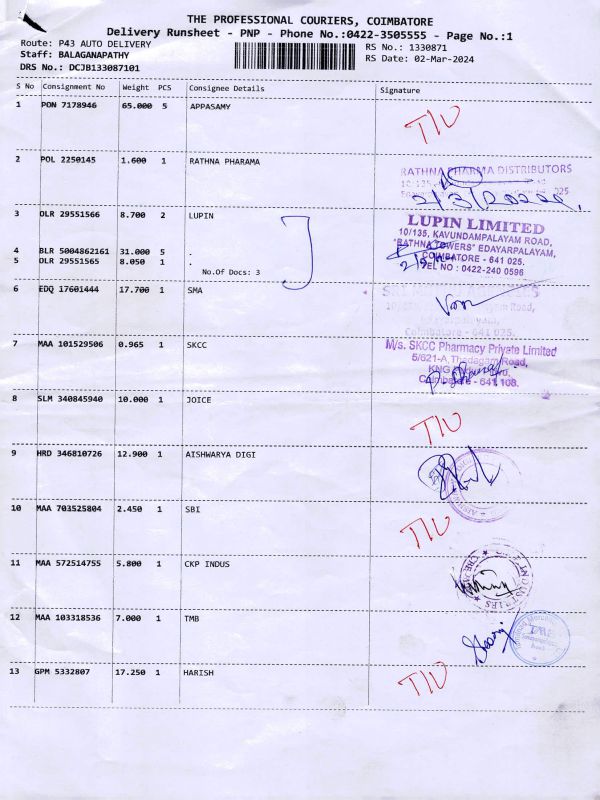 THE PROFESSIONAL COURIERS, COIMBATORE
Delivery Runsheet - PNP - Phone No.:0422-3505555 - Page No.:1
Route: P43 AUTO DELIVERY
RS No.: 1330871
Staff: BALAGANAPATHY
RS Date: 02-Mar-2024
DRS No.: DCJB133087101
S No Consignment No Weight PCS Consignee Details Signature
1 PON 7178946 65.000 5 APPASAMY
2 POL 2250145 1.600 1 RATHNA PHARAMA
RATHNA PHARMA DISTRIBUTORS
3 DLR 29551566 8.700 2 LUPIN
LUPIN LIMITED
10/135, KAVUNDAMPALAYAM ROAD,
"RATHNA TOWERS" EDAYARPALAYAM,
COIMBATORE - 641 025.
TEL NO : 0422-240 0596
4 BLR 5004862161 31.000 5 .
5 DLR 29551565 8.050 1 .
No.Of Docs: 3
6 EDQ 17601444 17.700 1 SMA
Coimbatore - 641 025.
7 MAA 101529506 0.965 1 SKCC
M/s. SKCC Pharmacy Private Limited
5/621-A, Thadagam Road,
Coimbatore - 641 108.
8 SLM 340845940 10.000 1 JOICE
9 HRD 346810726 12.900 1 AISHWARYA DIGI
10 MAA 703525804 2.450 1 SBI
11 MAA 572514755 5.800 1 CKP INDUS
12 MAA 103318536 7.000 1 TMB
13 GPM 5332807 17.250 1 HARISH